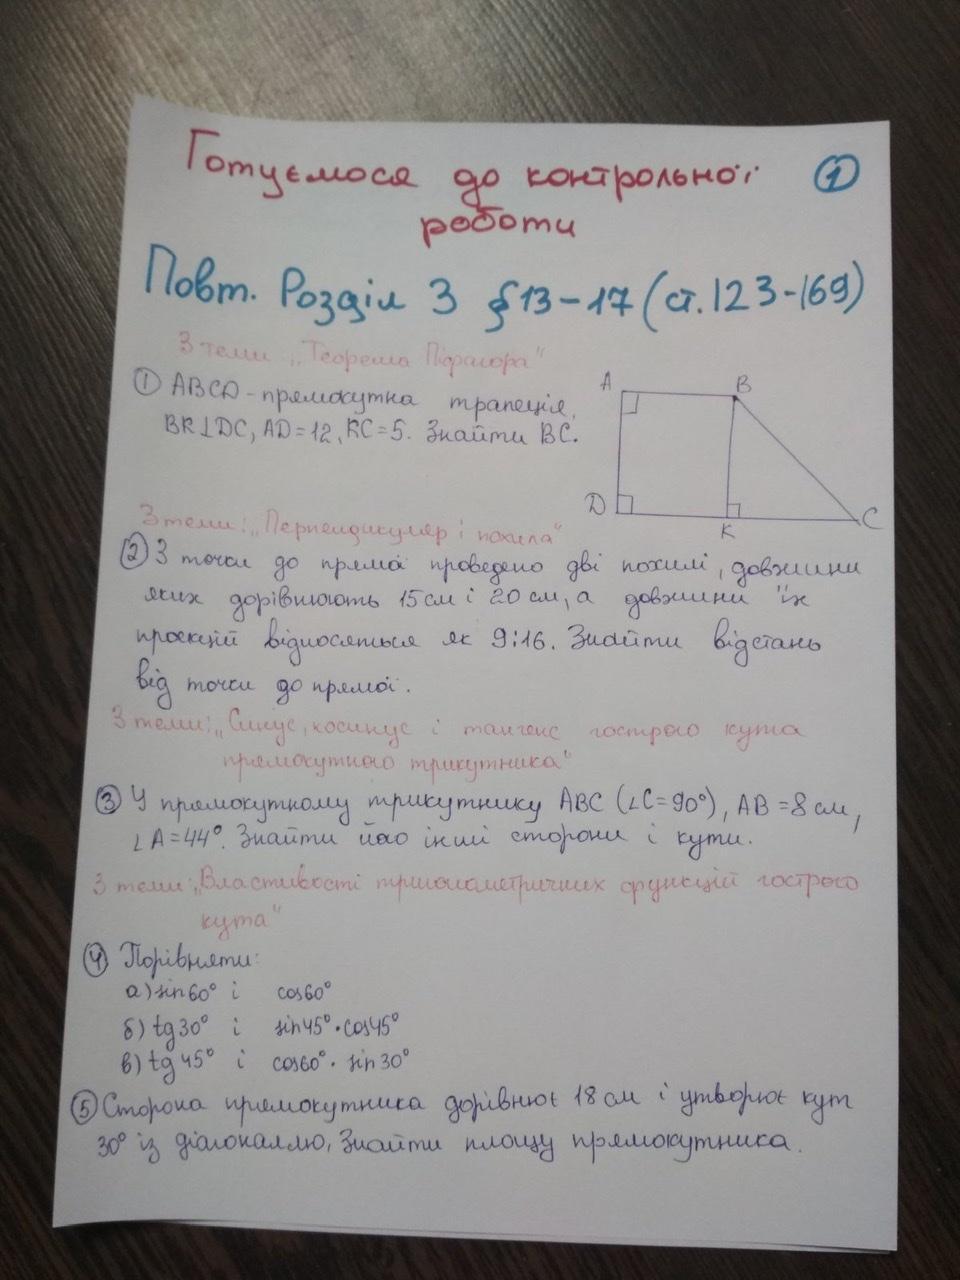 Готуємося до контрольної ①
роботи
Повт. Розділ 3 §13-17 (ст.123-169)
З теми: „Теорема Піфагора"
① ABCD - прямокутна трапеція,
BK⊥DC, AD=12, KC=5. Знайти BC.
A B
D K C
З теми: „Перпендикуляр і похила"
② З точки до прямої проведено дві похилі, довжини
яких дорівнюють 15 см і 20 см, а довжини їх
проєкцій відносяться як 9:16. Знайти відстань
від точки до прямої.
З теми: „Синус, косинус і тангенс гострого кута
прямокутного трикутника"
③ У прямокутному трикутнику ABC (∠C=90°), AB=8 см,
∠A=44°. Знайти його інші сторони і кути.
З теми: „Властивості тригонометричних функцій гострого
кута"
④ Порівняти:
а) sin60° і cos60°
б) tg30° і sin45°·cos45°
в) tg45° і cos60°·sin30°
⑤ Сторона прямокутника дорівнює 18 см і утворює кут
30° із діагоналлю. Знайти площу прямокутника.